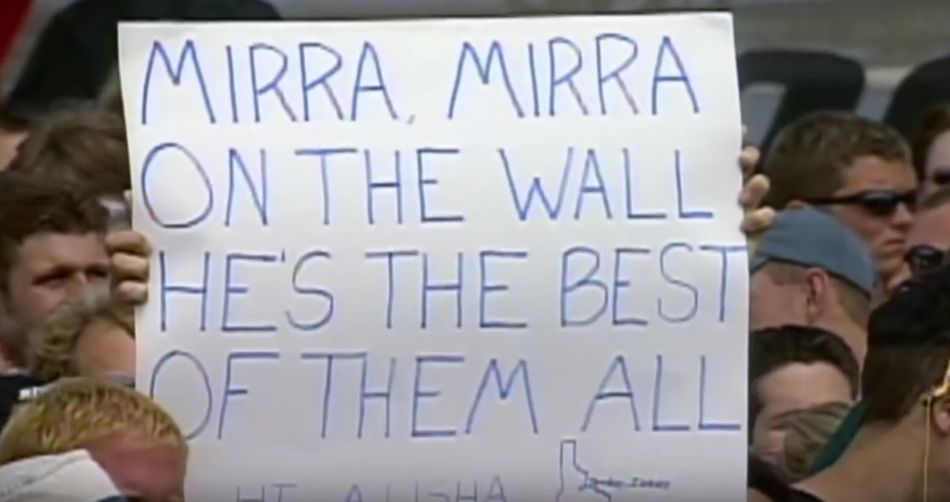 MIRRA, MIRRA
ON THE WALL
HE'S THE BEST
OF THEM ALL
HI ALISHA